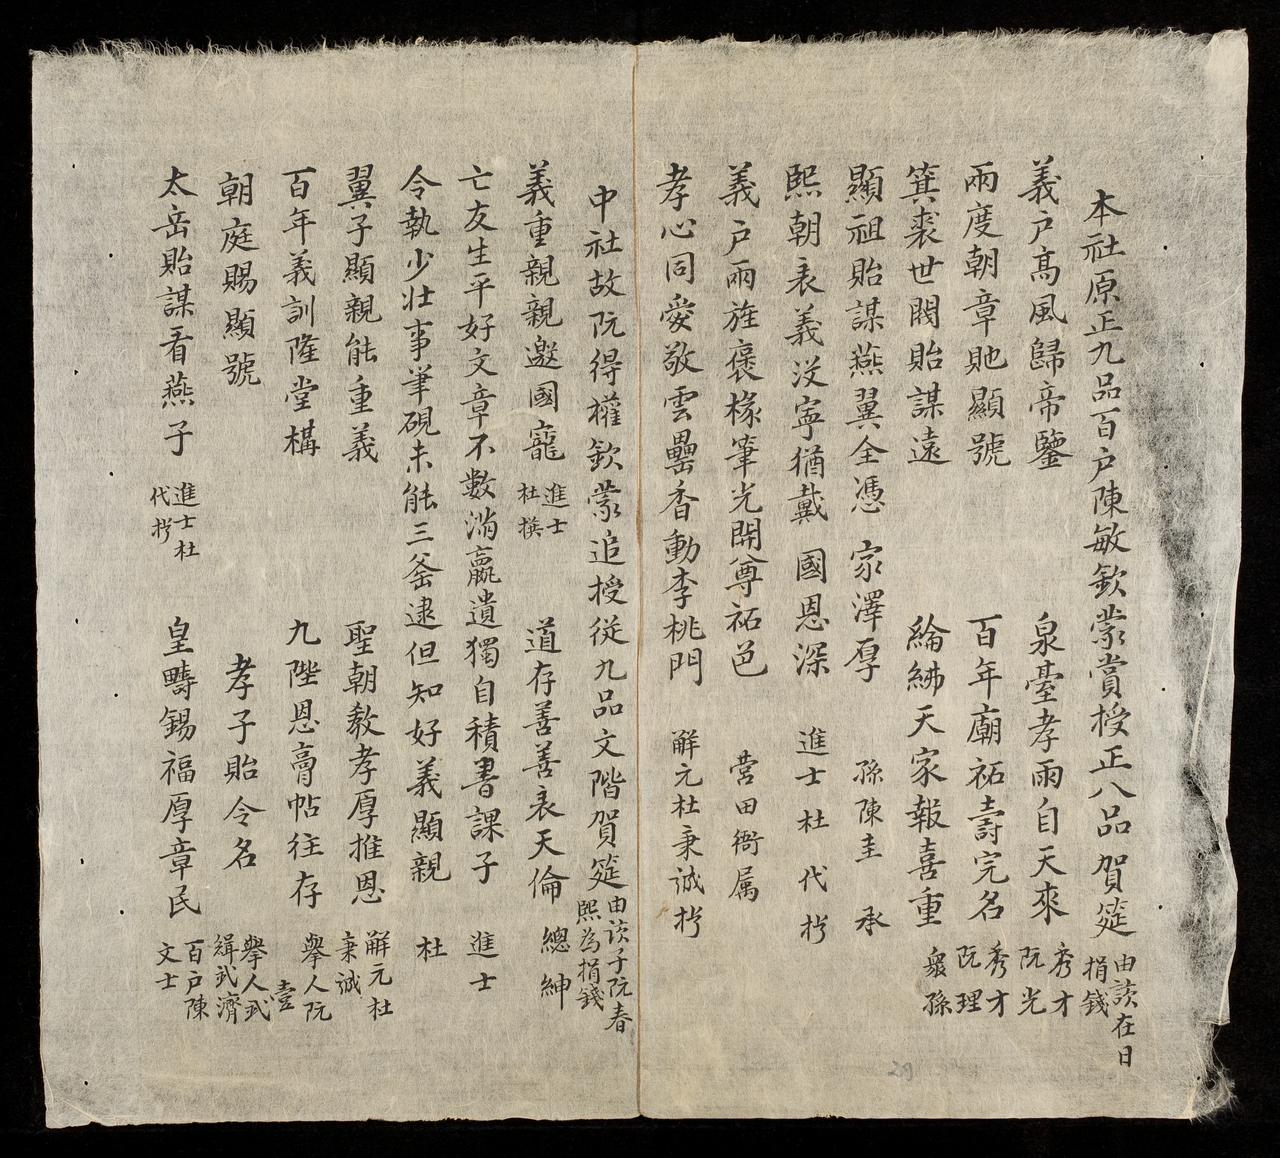 本社原正九品百户陳敏欽蒙賞授正八品賀筵由該在日捐錢
義户髙風歸帝鑒 泉臺孝雨自天來 秀才阮光
兩度朝章貤顯號 百年廟祏壽完名 秀才阮理
箕裘世閥貽謀遠 綸綍天家報喜重 衆孫
顯祖貽謀燕翼全憑 家澤厚 孫陳圭 承
熙朝表義没寧猶戴 國恩深 進士杜 代抄
義戸兩旌褒椽筆光開尊祏邑 营田衙属
孝心同愛敬雲罍香動李桃門 解元杜秉诚抄
中社故阮得權欽蒙追授從九品文階賀筵由该子阮春熙為捐錢
義重親親邀國寵 進士杜撰 道存善善表天倫 總紳
亡友生平好文章不數滿籯遺獨自積書課子 進士
令執少壮事筆硯未能三釜逮但知好義顯親 杜
翼子顯親能重義 聖朝教孝厚推恩 解元杜秉诚
百年義訓隆堂構 九陛恩膏帖往存 舉人阮壹
朝庭賜顯號 孝子貽令名 舉人武緝武濟
太岳貽謀看燕子 進士杜代抄 皇疇錫福厚章民 百户陳文士